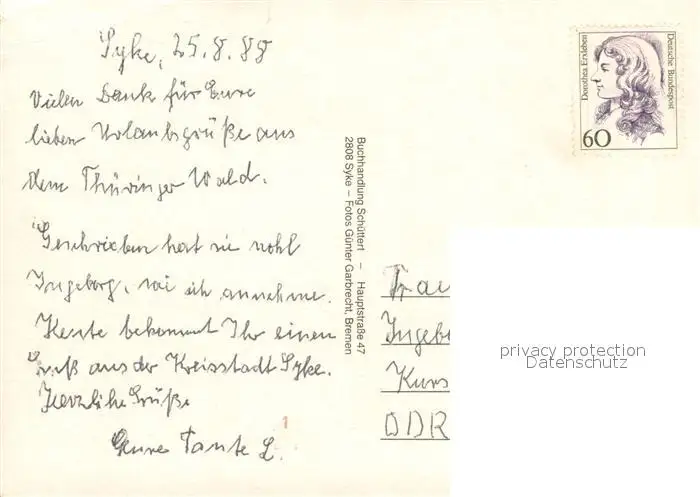 Syke, 25.8.88
Vielen Dank für Eure
lieben Urlaubsgrüße aus
dem Thüringer Wald.
Geschrieben hat sie wohl
Ingeborg, wie ich annehme.
Heute bekommt Ihr einen
Gruß aus der Kreisstadt Syke.
Herzliche Grüße
Eure Tante L.
Buchhandlung Schüttert – Hauptstraße 47
2808 Syke – Fotos Günter Garbrecht, Bremen
Dorothea Erxleben
Deutsche Bundespost
60
Frau
Ingeb
Kurs
DDR
1
privacy protection
Datenschutz